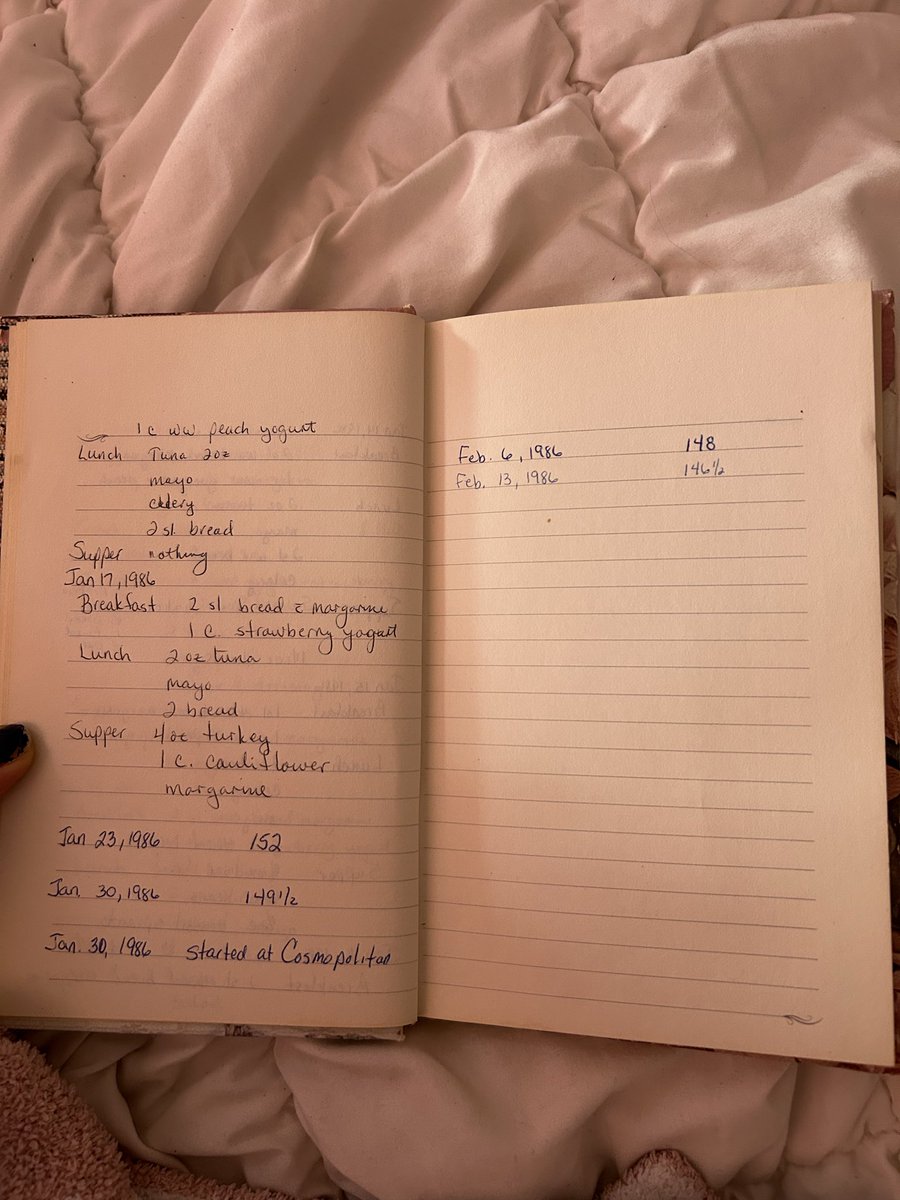 1 c ww peach yogurt
Lunch Tuna 2oz
mayo
celery
2 sl. bread
Supper nothing
Jan 17, 1986
Breakfast 2 sl bread c̄ margarine
1 c. strawberry yogurt
Lunch 2 oz tuna
mayo
2 bread
Supper 4 oz turkey
1 c. cauliflower
margarine
Jan 23, 1986 152
Jan. 30, 1986 149 1/2
Jan. 30, 1986 started at Cosmopolitan
Feb. 6, 1986 148
Feb. 13, 1986 146 1/2